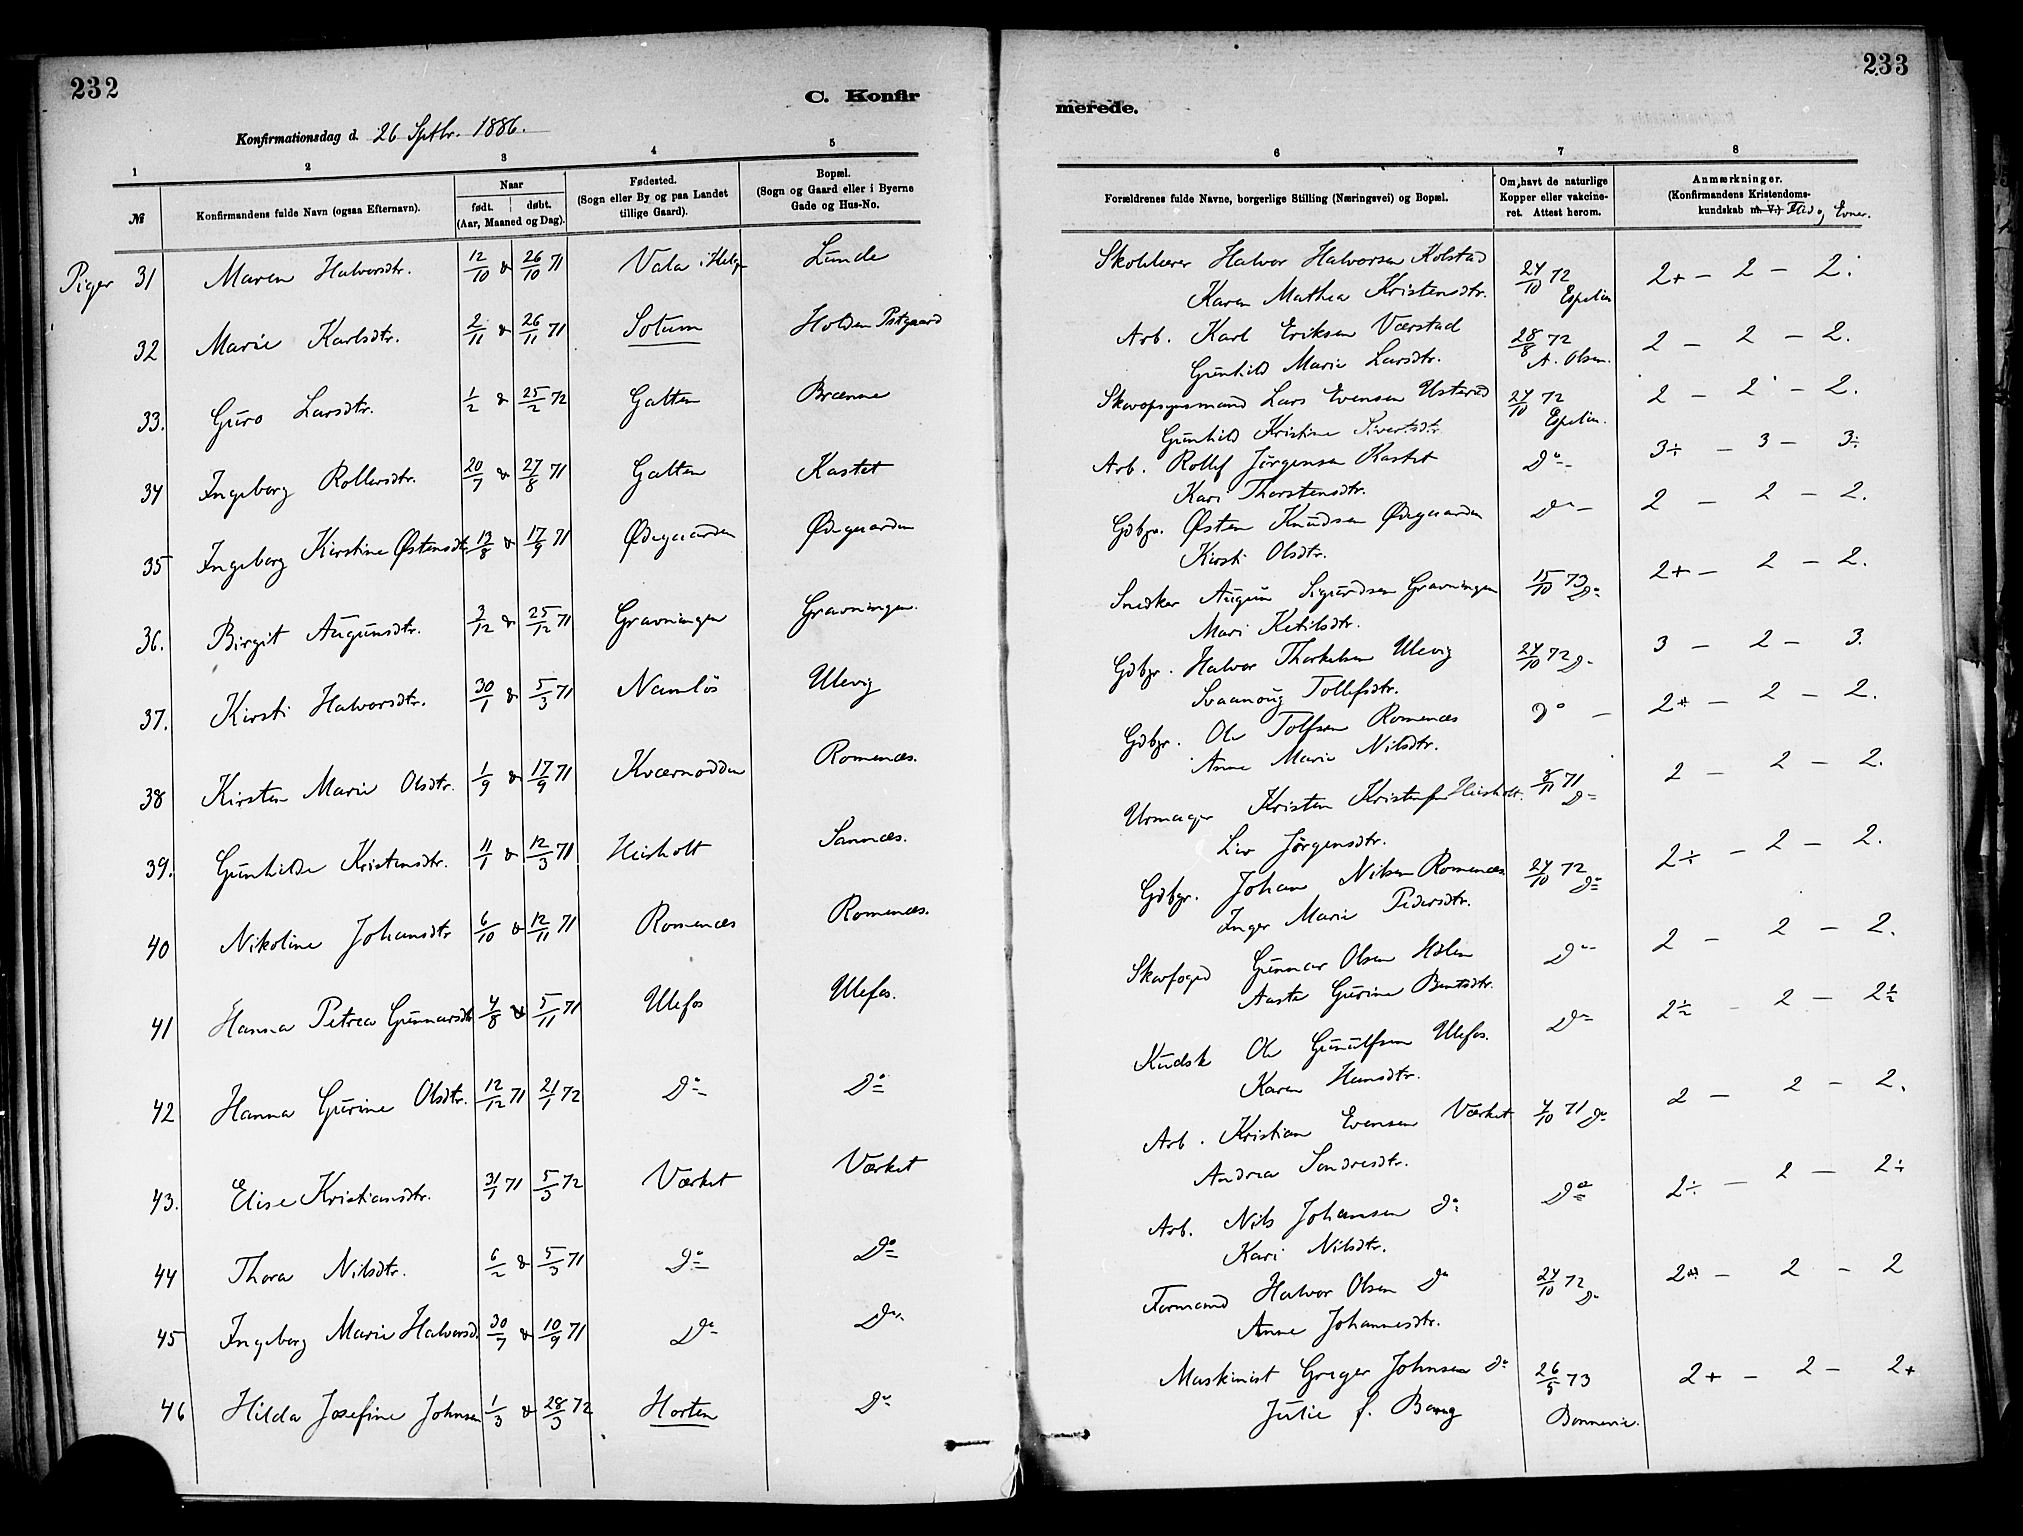 232
C. Konfir
Konfirmationsdag d. 26 Septbr. 1886.
1 2 3 4 5
№
Konfirmandens fulde Navn (ogsaa Efternavn).
Naar
født. døbt.
(Aar, Maaned og Dag).
Fødested.
(Sogn eller By og paa Landet
tillige Gaard).
Bopæl.
(Sogn og Gaard eller i Byerne
Gade og Hus-No.
Piger 31 Maren Halvorsdtr. 12/10 & 26/10 71 Vala i Helg Lunde
32 Marie Karlsdtr. 2/11 & 26/11 71 Sotum Holden Pstgaard
33. Guro Larsdtr. 1/2 & 25/2 72 Galten Brænne
34 Ingeborg Rollefsdtr. 20/7 & 27/8 71 Galten Kastet
35 Ingeborg Kirstine Østensdtr. 13/8 & 17/9 71 Ødegaarden Ødegaarden
36. Birgit Augunsdtr. 3/12 & 25/12 71 Gravningen Gravningen.
37. Kirsti Halvorsdtr. 30/1 & 5/3 71 Namløs Ulevig
38 Kirsten Marie Olsdtr. 1/9 & 17/9 71 Kværnodden Romenæs.
39. Gunhilde Kristensdtr. 11/1 & 12/3 71 Heisholt Sannæs.
40 Nikoline Johansdtr 6/10 & 12/11 71 Romenæs Romenæs.
41 Hanna Petrea Gunnarsdtr 4/8 & 5/11 71 Ulefos Ulefos.
42 Hanna Gurine Olsdtr. 12/12 71 21/1 72 Do Do
43. Elise Kristiansdtr. 31/1 71 5/3 72 Værket Værket
44 Thora Nilsdtr. 6/2 & 5/3 71 Do Do
45 Ingeborg Marie Halvorsd. 30/7 & 10/9 71 Do Do
46 Hilda Josefine Johnsen 1/3 & 28/3 72 Horten Do
233
merede.
6 7 8
Forældrenes fulde Navne, borgerlige Stilling (Næringsvei) og Bopæl.
Om havt de naturlige
Kopper eller vakcine-
ret. Attest herom.
Anmærkninger.
(Konfirmandens Kristendoms-
kundskab m. V.) Flid og Evner.
Skolelærer Halvor Halvorsen Kolstad 24/10 72 2+ – 2 – 2.
Karen Mathea Kristensdtr. Espelin
Arb. Karl Eriksen Værstad 28/8 72 2 – 2 – 2.
Gunhild Marie Larsdtr. A. Olsen.
Skovopsynsmand Lars Evensen Usterud 24/10 72 2 – 2 – 2.
Gunhild Kristine Sivertsdtr. Espelin.
Arb. Rollef Jørgensen Kastet Do 3÷ – 3 – 3÷
Kari Thorstensdtr.
Gdbgr. Østen Knudsen Ødegaarden Do – 2 – 2 – 2.
Kirsti Olsdtr.
Snedker Augun Sigurdsen Gravningen 15/10 73 Do 2+ – 2 – 2.
Mari Ketilsdtr.
Gdbgr. Halvor Thorkelsen Ulevig 24/10 72 Do 3 – 2 – 3.
Svaanoug Tollefsdtr.
Gdbgr. Ole Tolfsen Romenæs Do – 2+ – 2 – 2.
Anne Marie Nilsdtr.
Urmager Kristen Kristensen Heisholt. 8/11 71 Do 2 – 2 – 2.
Liv Jørgensdtr.
Gdbgr. Johan Nilsen Romenæs 24/10 72 Do 2÷ – 2 – 2.
Inger Marie Pedersdtr.
Skovfoged Gunnar Olsen Holen Do 2 – 2 – 2.
Aaste Gurine Bentsdtr.
Kudsk Ole Gunulfsen Ulefos. Do 2÷ – 2 – 2÷
Karen Hansdtr.
Arb. Kristian Evensen Værket 4/10 71 Do 2 – 2 – 2.
Andrea Sondresdtr.
Arb. Nils Johansen Do Do 2÷ – 2 – 2÷
Kari Nilsdtr.
Formand Halvor Olsen Do 24/10 72 Do 2+ – 2 – 2
Anne Johannesdtr.
Maskinist Greger Johnsen Do 26/5 73 2+ – 2 – 2+
Julie f. Bang Bonnevie.